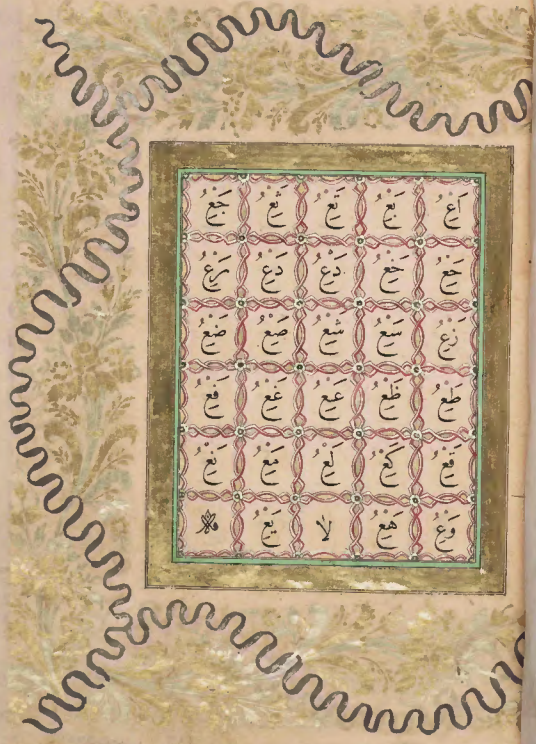 اَعْ بَعْ تَعْ ثَعْ جَعْ
حَعْ خَعْ دَعْ ذَعْ رَعْ
زَعْ سَعْ شَعْ صَعْ ضَعْ
طَعْ ظَعْ عَعْ غَعْ فَعْ
قَعْ كَعْ لَعْ مَعْ نَعْ
وَعْ هَعْ لا يَعْ